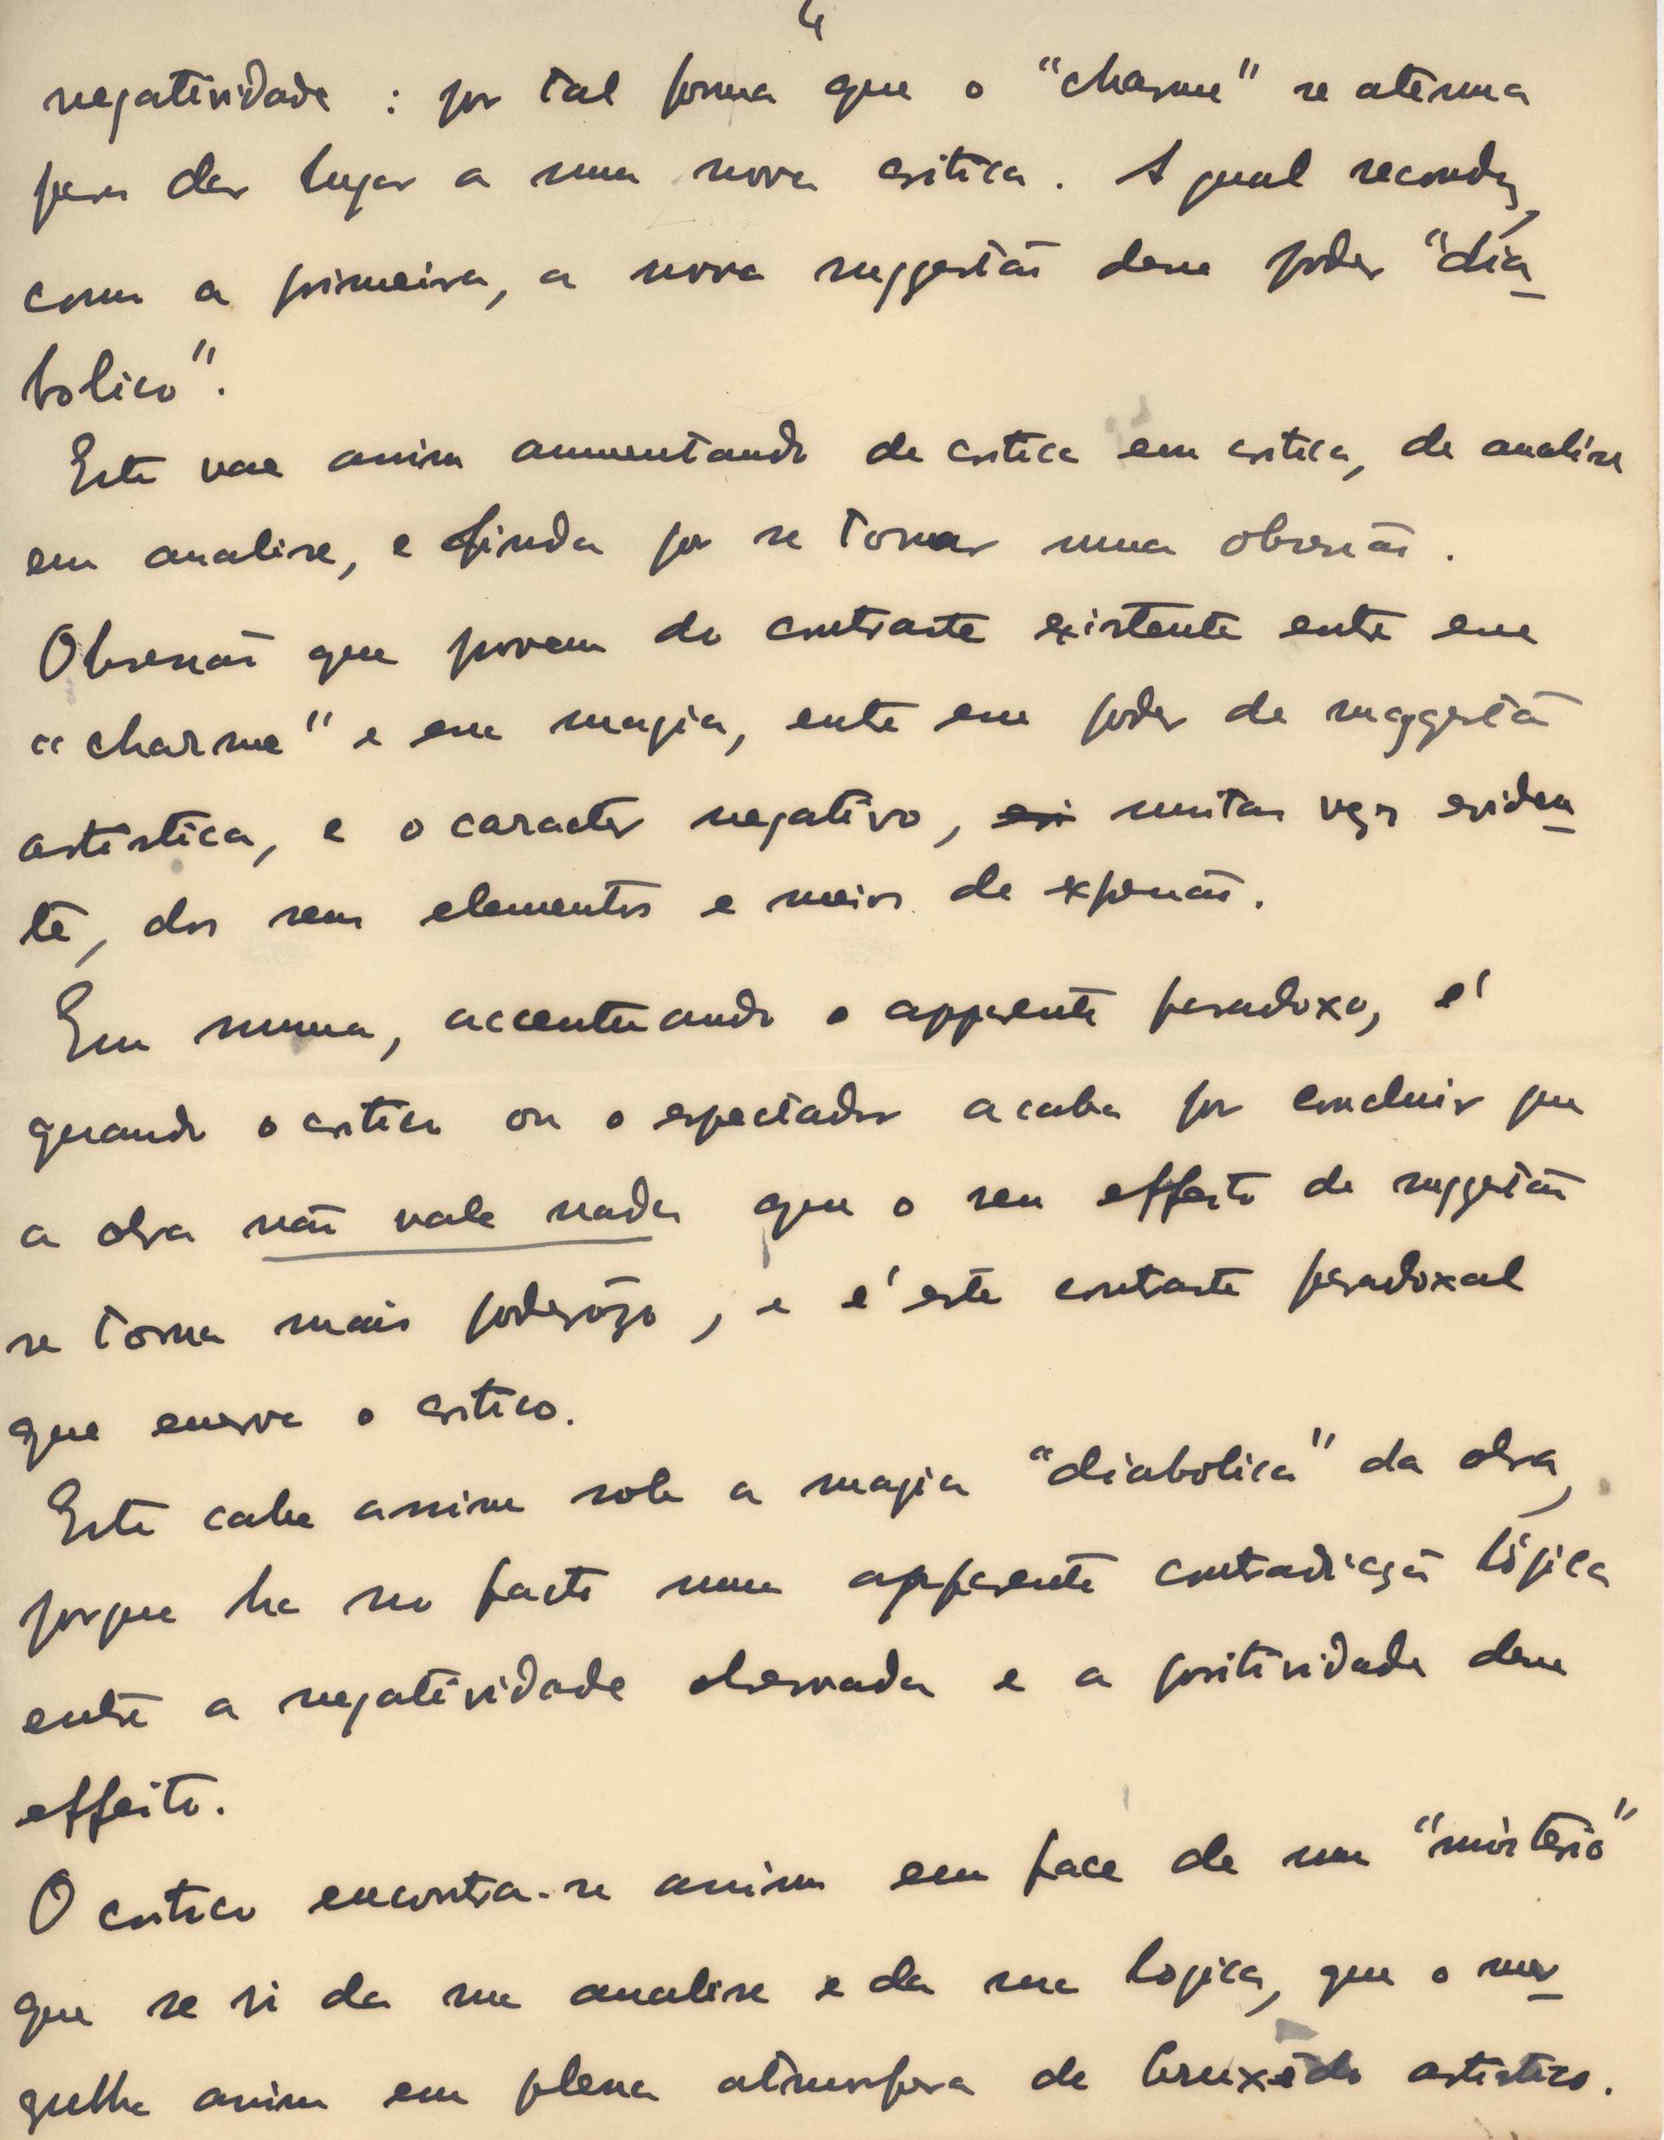 4
negatividade : por tal forma que o "charme" se atenua
para dar lugar a uma nova critica. A qual reconduz,
como a primeira, a nova suggestão desse poder "dia-
bolico".
Este vae assim aumentando de critica em critica, de analise
em analise, e finda por se tornar uma obsessão.
Obsessão que provem do contraste existente entre esse
"charme" e essa magia, entre esse poder de suggestão
artistica, e o caracter negativo, muitas vezes eviden-
te, dos seus elementos e meios de expressão.
Em summa, accentuando o apparente paradoxo, é
quando o critico ou o espectador acaba por concluir que
a obra não vale nada que o seu effeito de suggestão
se torna mais poderôzo, e é este contraste paradoxal
que enerva o critico.
Este cahe assim sob a magia "diabolica" da obra,
porque ha no facto uma apparente contradicção lógica
entre a negatividade observada e a positividade desse
effeito.
O critico encontra-se assim em face de um "misterio"
que se ri da sua analise e da sua logica, que o mer-
gulha assim em plena atmosfera de bruxêdo artistico.